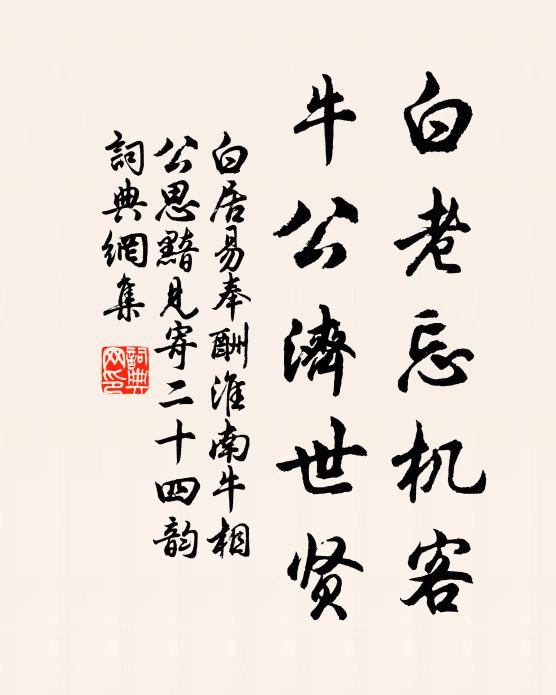 白老忘机客
牛公濟世贤
白居易奉酬淮南牛相
公思黯見寄二十四韵
詞典網集
詞典
网印